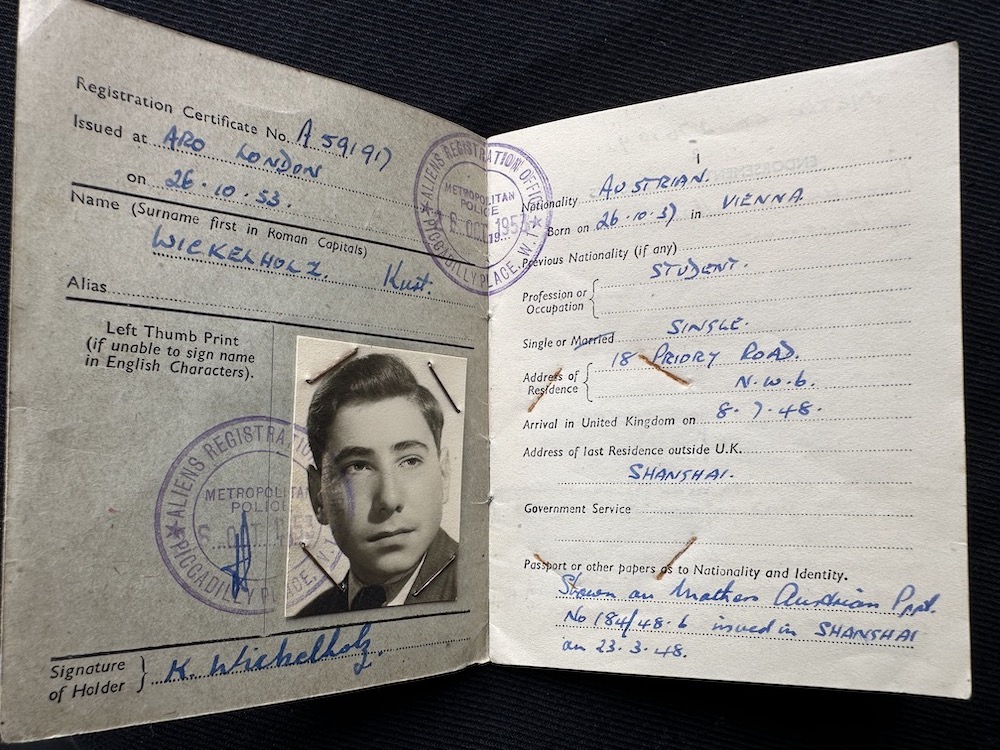 Registration Certificate No. A 591917
Issued at ARO LONDON
on 26.10.53.
Name (Surname first in Roman Capitals)
WICKELHOLZ. Kurt.
Alias
Left Thumb Print
(if unable to sign name
in English Characters).
ALIENS REGISTRATION OFFICE
METROPOLITAN
POLICE
26 OCT 1953
PICCADILLY PLACE, W.1.
ALIENS REGISTRATION
METROPOLITAN
POLICE
OCT 1953
PICCADILLY PLACE, W.1.
Signature
of Holder
K. Wickelholz.
Nationality AUSTRIAN.
Born on 26.10.37 in VIENNA
Previous Nationality (if any)
Profession or
Occupation
STUDENT.
Single or Married SINGLE.
Address of
Residence
18 PRIORY ROAD.
N.W.6.
Arrival in United Kingdom on 8.7.48.
Address of last Residence outside U.K.
SHANGHAI.
Government Service
Passport or other papers as to Nationality and Identity.
Shewn on Mothers Austrian Ppt.
No 184/48.6 issued in SHANGHAI
on 23.3.48.